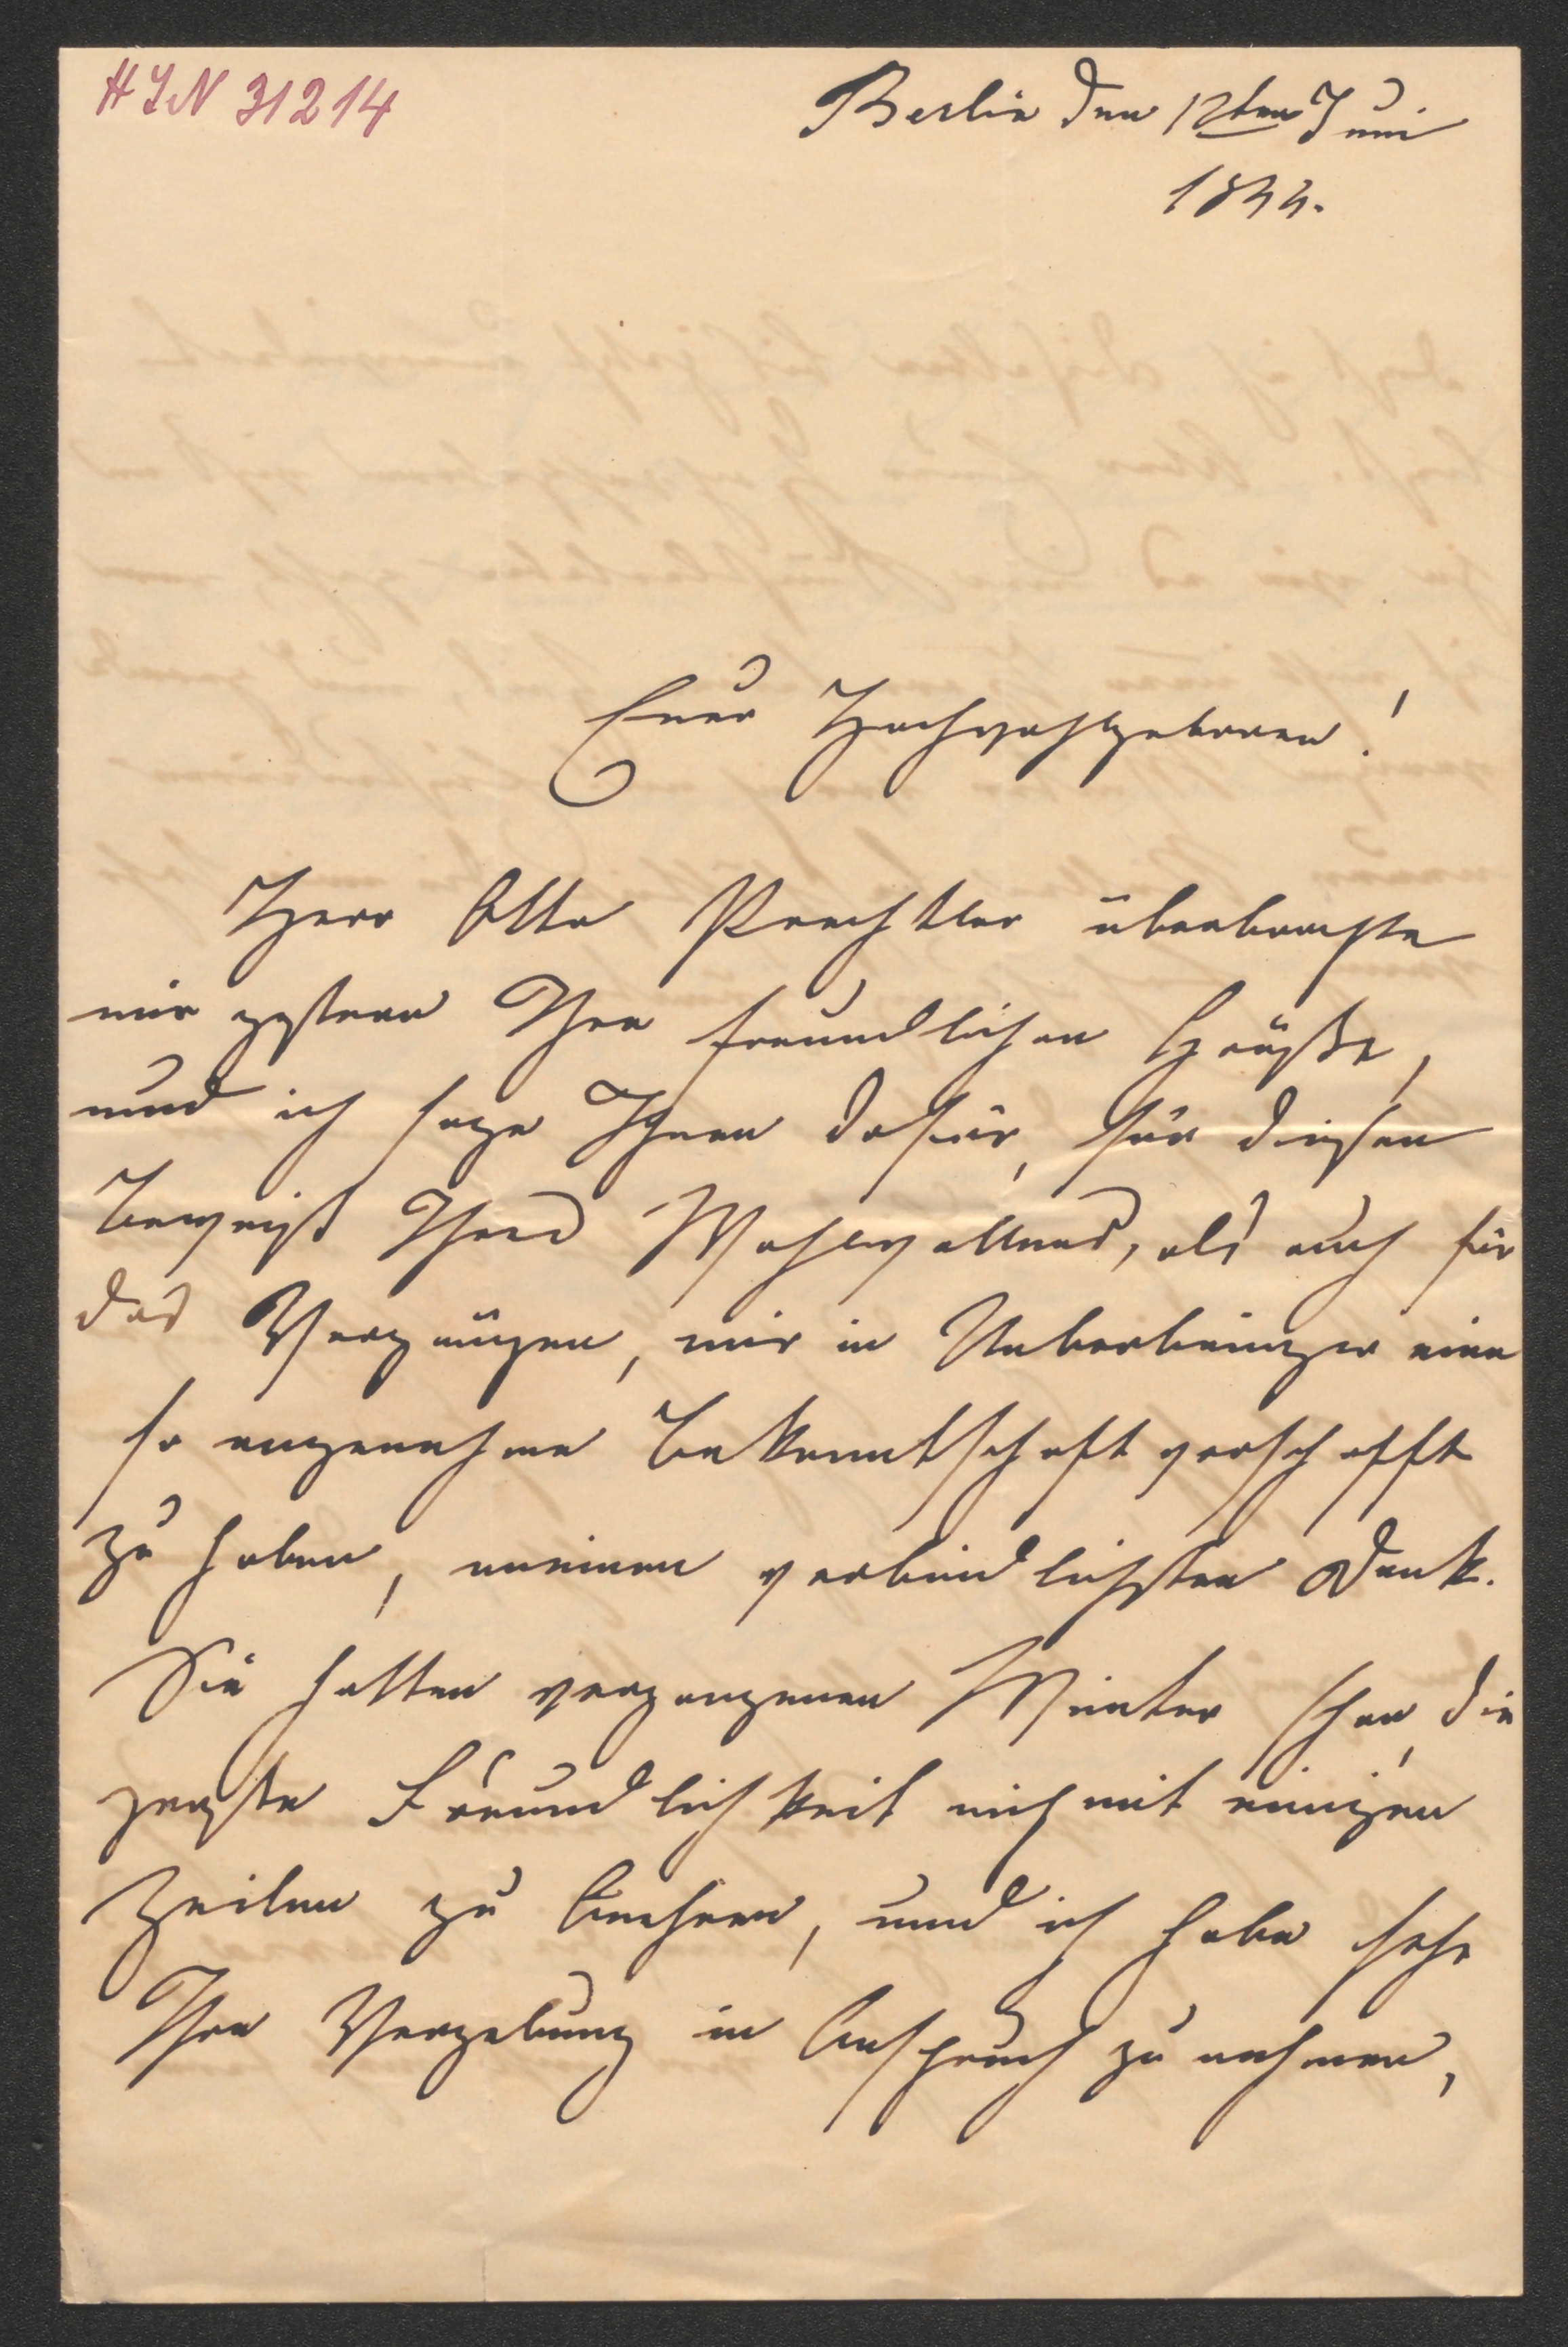 HIN 31214
Berlin den 12ten Juni
1844.
Euer Hochwohlgeboren!
Herr Otto Prechtler überbrachte
mir gestern Ihre freundlichen Grüße,
und ich sage Ihnen dafür, für diesen
Beweiß Ihres Wohlwollens, als auch für
das Vergnügen, mir in Ueberbringer eine
so angenehme Bekanntschaft verschafft
zu haben, meinen verbindlichsten Dank.
Sie hatten vergangenen Winter schon die
große Freundlichkeit mich mit einigen
Zeilen zu beehren, und ich habe sehr
Ihre Vergebung in Anspruch zu nehmen,